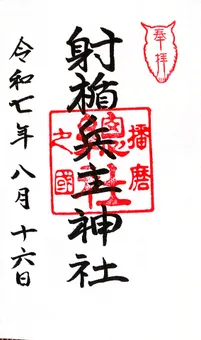 奉拝
射楯兵主神社
播磨
之國
總社
令和七年八月十六日